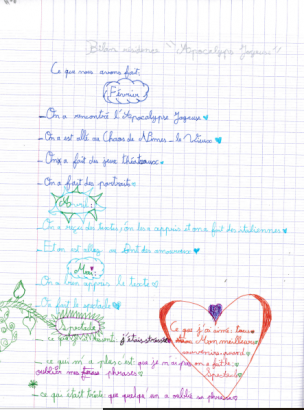 Bilan résidence "Apocalypse Joyeuse"
Ce que nous avons fait.
Février
_On a rencontré l'Apocalypse Joyeuse
_On est allé au Chaos de Nîmes-le-Vieux
_On a fait des jeux théâtraux.
_On a fait des portraits.
Avril:
_On a reçu les textes, on les a appris et on a fait des italiennes
_Et on est allés au
Mai:
_On a bien appris le texte
_On fait le spectacle
Spectacle
_ce que j'étais stressé
_ce qui m'a plu c'est que je n'ai pas
oublié mes phrases
_ce qui était triste que quelqu'un a oublié sa phrase
Ce que j'ai aimé: tous
Mon meilleur
souvenir: quand
on a fait le
spectacle